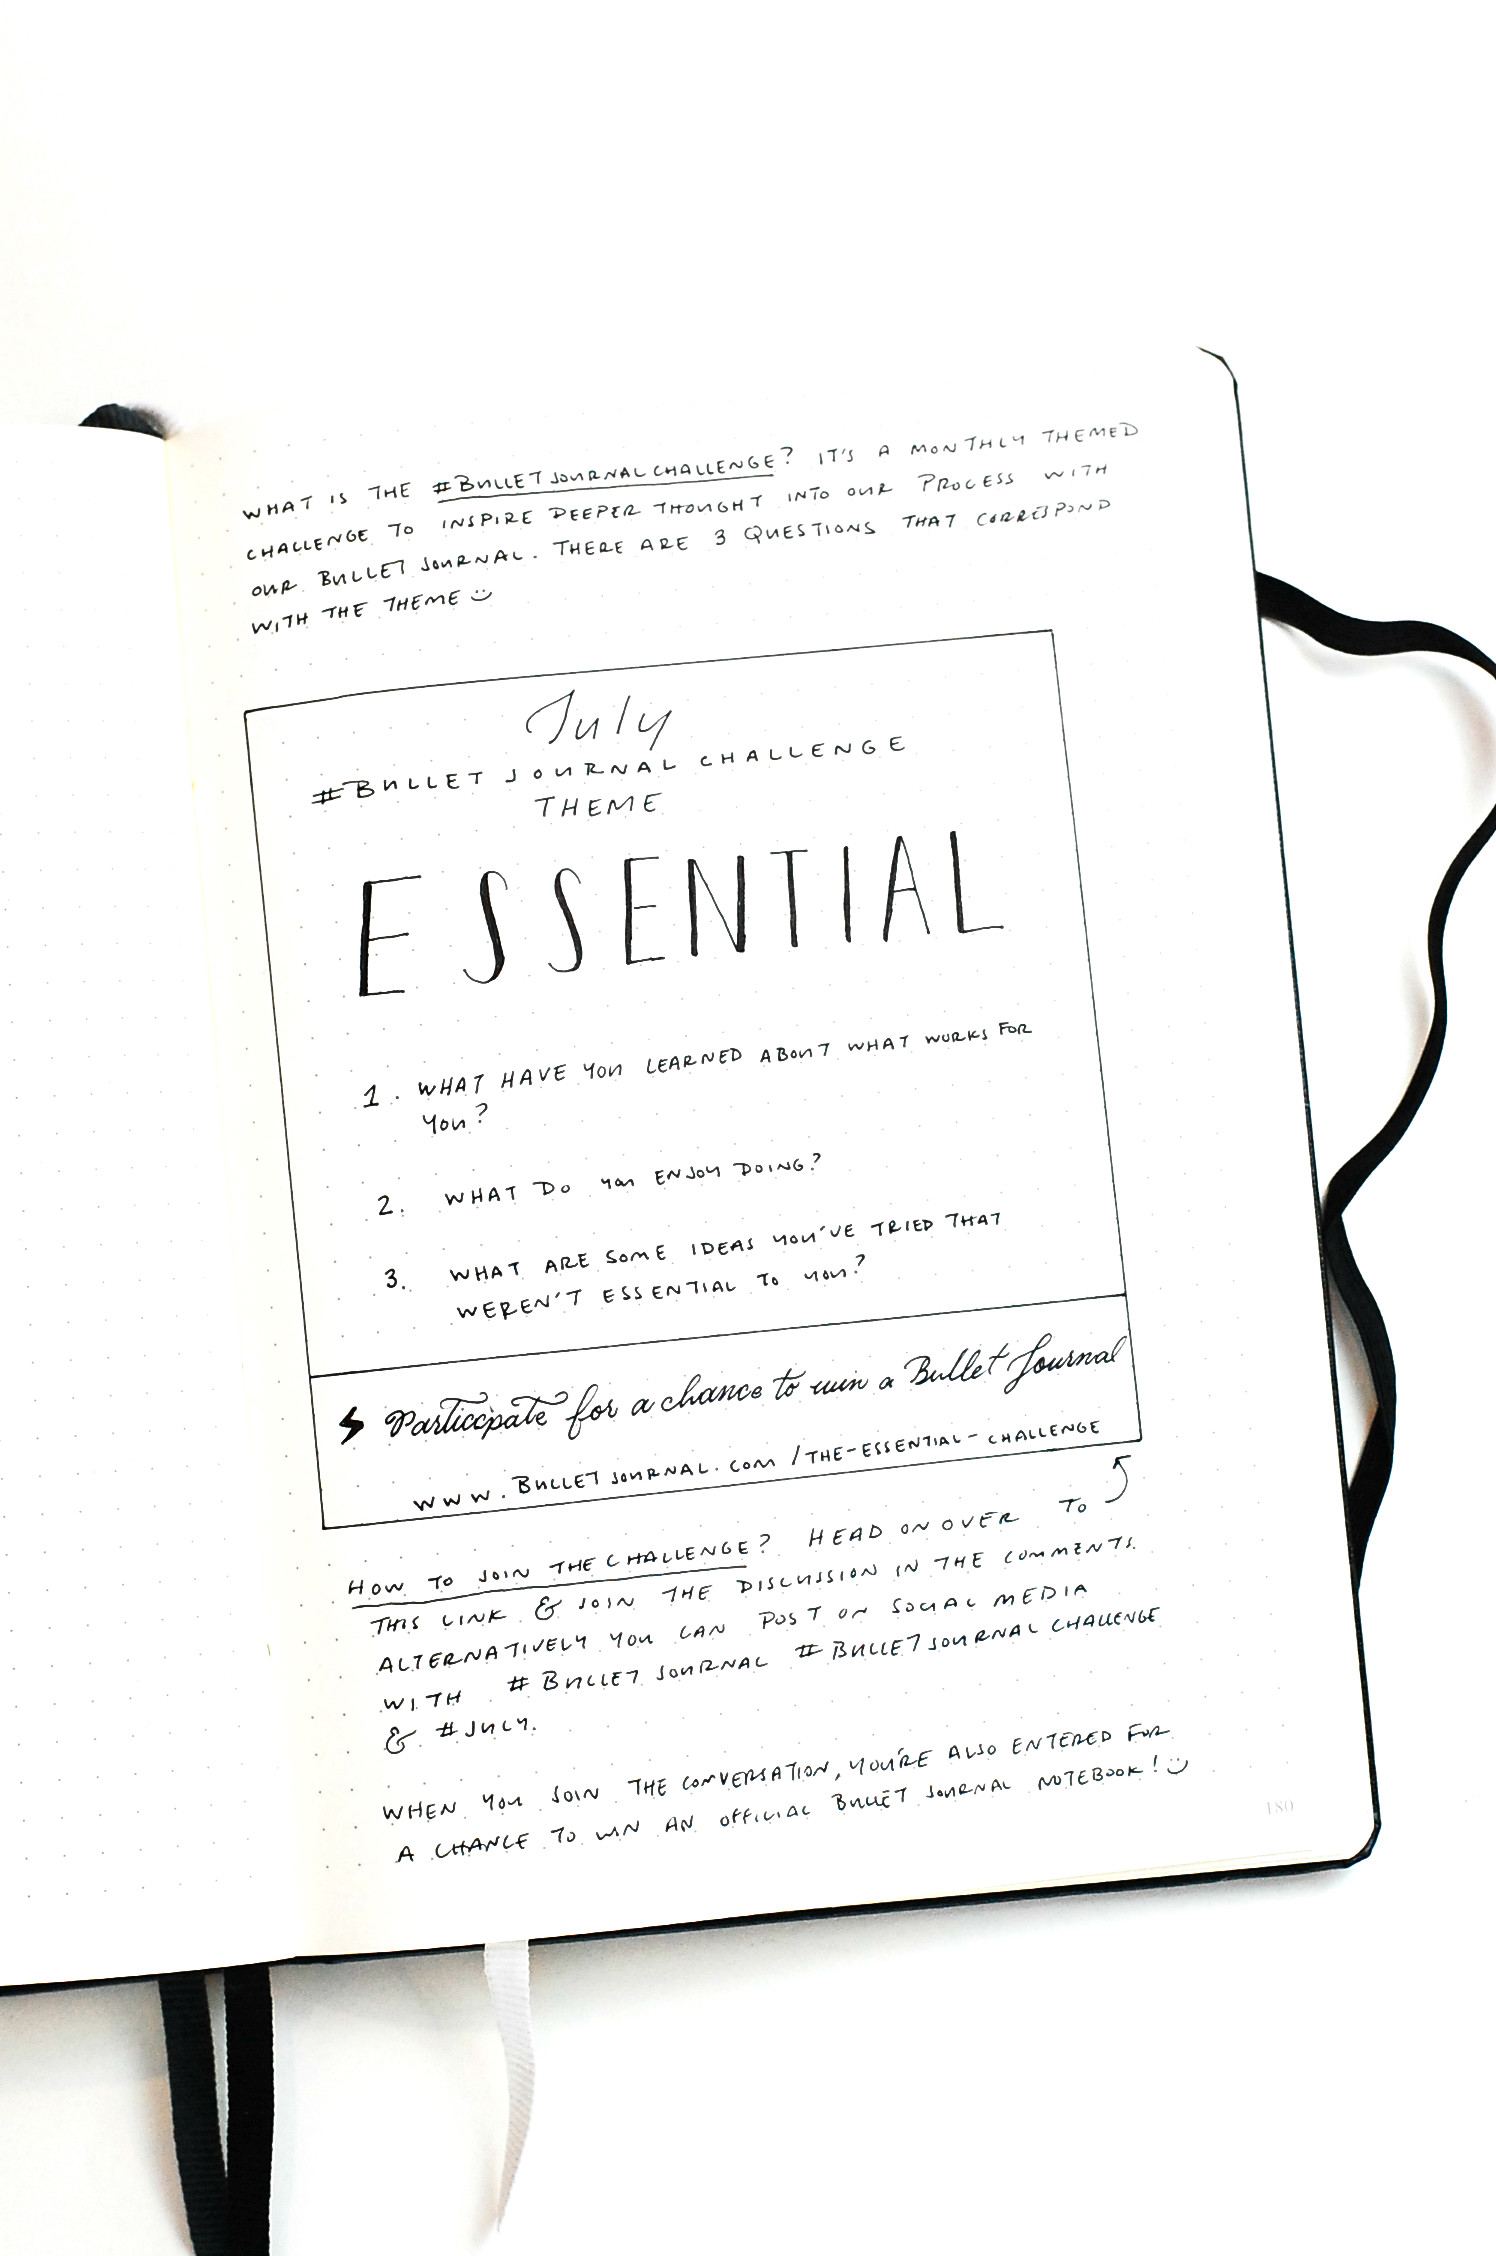 WHAT IS THE #BULLETJOURNALCHALLENGE? IT'S A MONTHLY THEMED
CHALLENGE TO INSPIRE DEEPER THOUGHT INTO OUR PROCESS WITH
OUR BULLET JOURNAL. THERE ARE 3 QUESTIONS THAT CORRESPOND
WITH THE THEME
July
#BULLET JOURNAL CHALLENGE
THEME
ESSENTIAL
1. WHAT HAVE YOU LEARNED ABOUT WHAT WORKS FOR
YOU?
2. WHAT DO YOU ENJOY DOING?
3. WHAT ARE SOME IDEAS YOU'VE TRIED THAT
WEREN'T ESSENTIAL TO YOU?
Participate for a chance to win a Bullet Journal
WWW.BULLETJOURNAL.COM/THE-ESSENTIAL-CHALLENGE
HOW TO JOIN THE CHALLENGE? HEAD ON OVER TO
THIS LINK & JOIN THE DISCUSSION IN THE COMMENTS.
ALTERNATIVELY YOU CAN POST ON SOCIAL MEDIA
WITH #BULLETJOURNAL #BULLETJOURNALCHALLENGE
& #JULY.
WHEN YOU JOIN THE CONVERSATION, YOU'RE ALSO ENTERED FOR
A CHANCE TO WIN AN OFFICIAL BULLET JOURNAL NOTEBOOK!
180